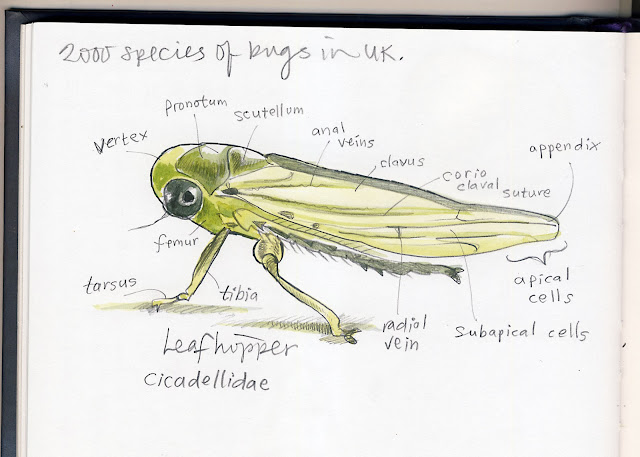 2000 species of bugs in UK.
pronotum
scutellum
vertex
anal
veins
clavus
appendix
corio
claval
suture
femur
tarsus
tibia
apical
cells
radial
vein
subapical cells
Leafhopper
Cicadellidae